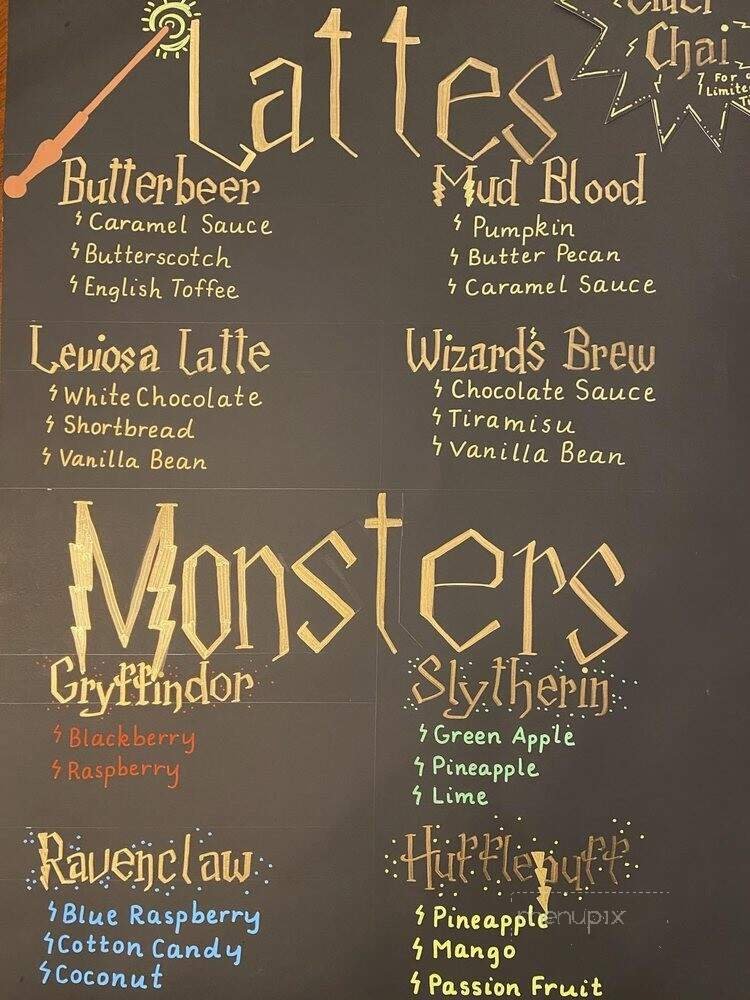 Lattes
Chai
For a
Limited
Butterbeer
Caramel Sauce
Butterscotch
English Toffee
Mud Blood
Pumpkin
Butter Pecan
Caramel Sauce
Leviosa Latte
White Chocolate
Shortbread
Vanilla Bean
Wizard's Brew
Chocolate Sauce
Tiramisu
Vanilla Bean
Monsters
Gryffindor
Blackberry
Raspberry
Slytherin
Green Apple
Pineapple
Lime
Ravenclaw
Blue Raspberry
Cotton Candy
Coconut
Hufflepuff
Pineapple
Mango
Passion Fruit
menupix